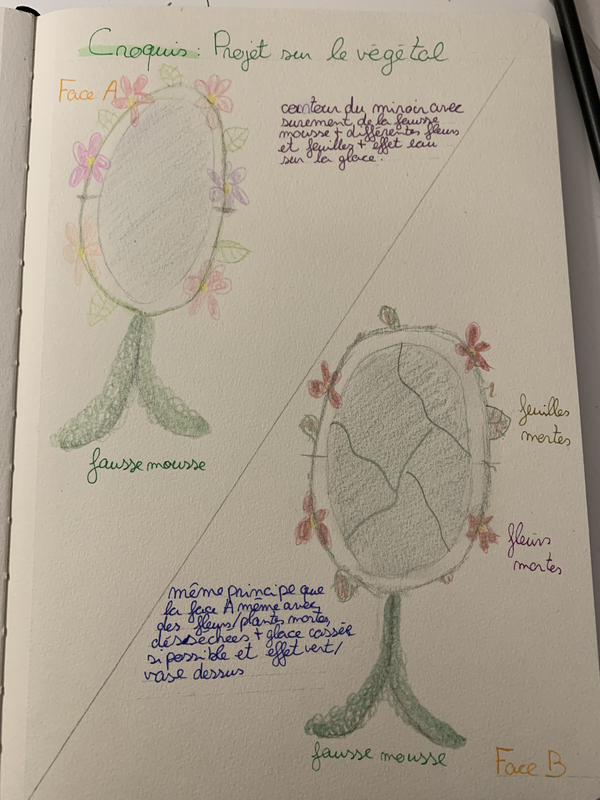 Croquis : Projet sur le végétal
Face A
contour du miroir avec
surement de la fausse
mousse + différentes fleurs
et feuilles + effet eau
sur la glace.
fausse mousse
feuilles
mortes
fleurs
mortes
même principe que
la face A même avec
des fleurs/plantes mortes,
désséchées + glace cassée
si possible et effet vert/
vase dessus
fausse mousse
Face B